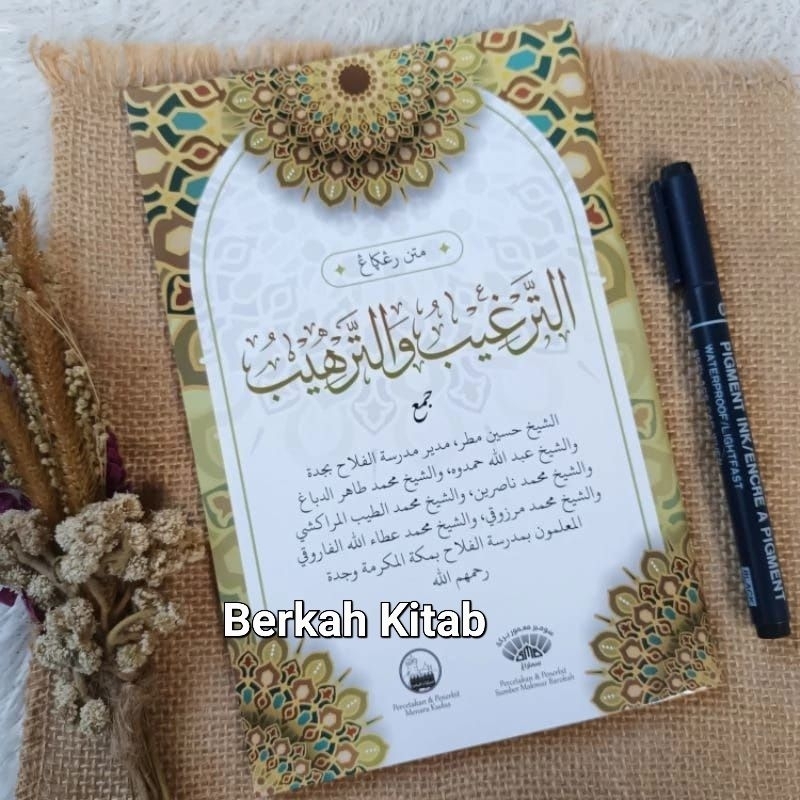 متن رڠكاڠ
التَّرْغِيبُ وَالتَّرْهِيبُ
جمع
الشيخ حسين مطر، مدير مدرسة الفلاح بجدة
والشيخ عبد الله حمدوه، والشيخ محمد طاهر الدباغ
والشيخ محمد ناصرين، والشيخ محمد الطيب المراكشي
والشيخ محمد مرزوقي، والشيخ محمد عطاء الله الفاروقي
المعلمون بمدرسة الفلاح بمكة المكرمة وجدة
رحمهم الله
Berkah Kitab
Percetakan & Penerbit
Menara Kudus
سومبر معمور بركة
SMB
سماراڠ
Percetakan & Penerbit
Sumber Makmur Barokah
PIGMENT INK/ENCRE A PIGMENT
WATERPROOF/LIGHTFAST